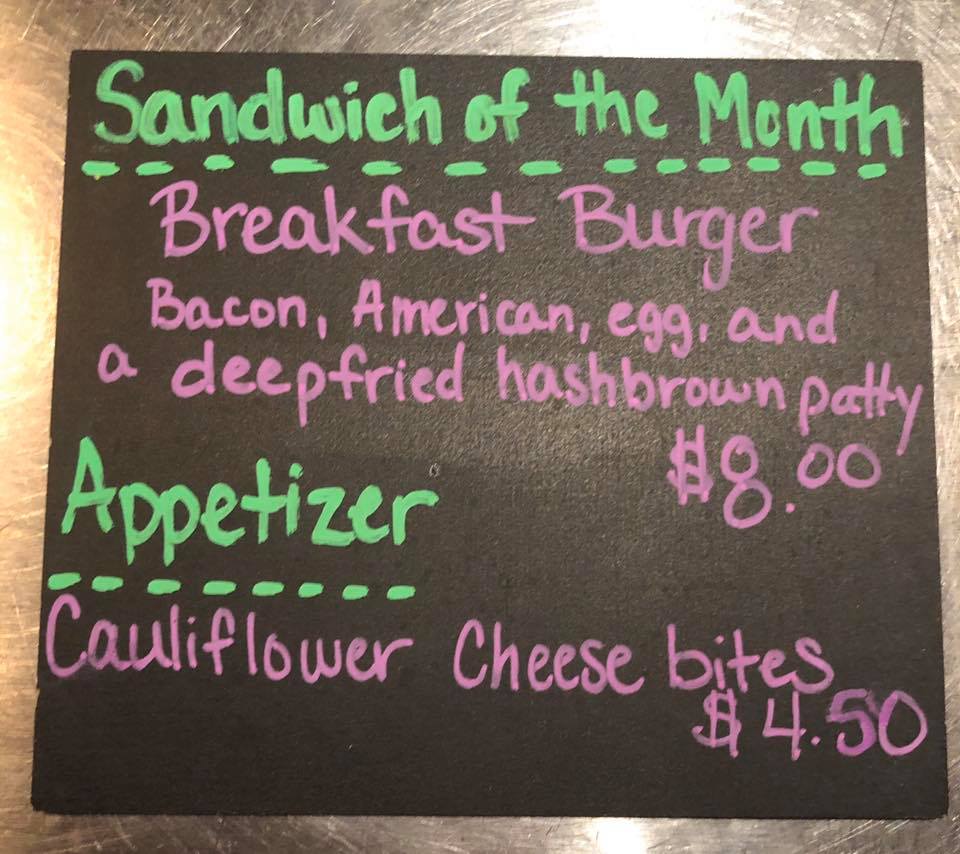 Sandwich of the Month
Breakfast Burger
Bacon, American, egg, and
a deepfried hashbrown patty
$8.00
Appetizer
Cauliflower Cheese bites
$4.50